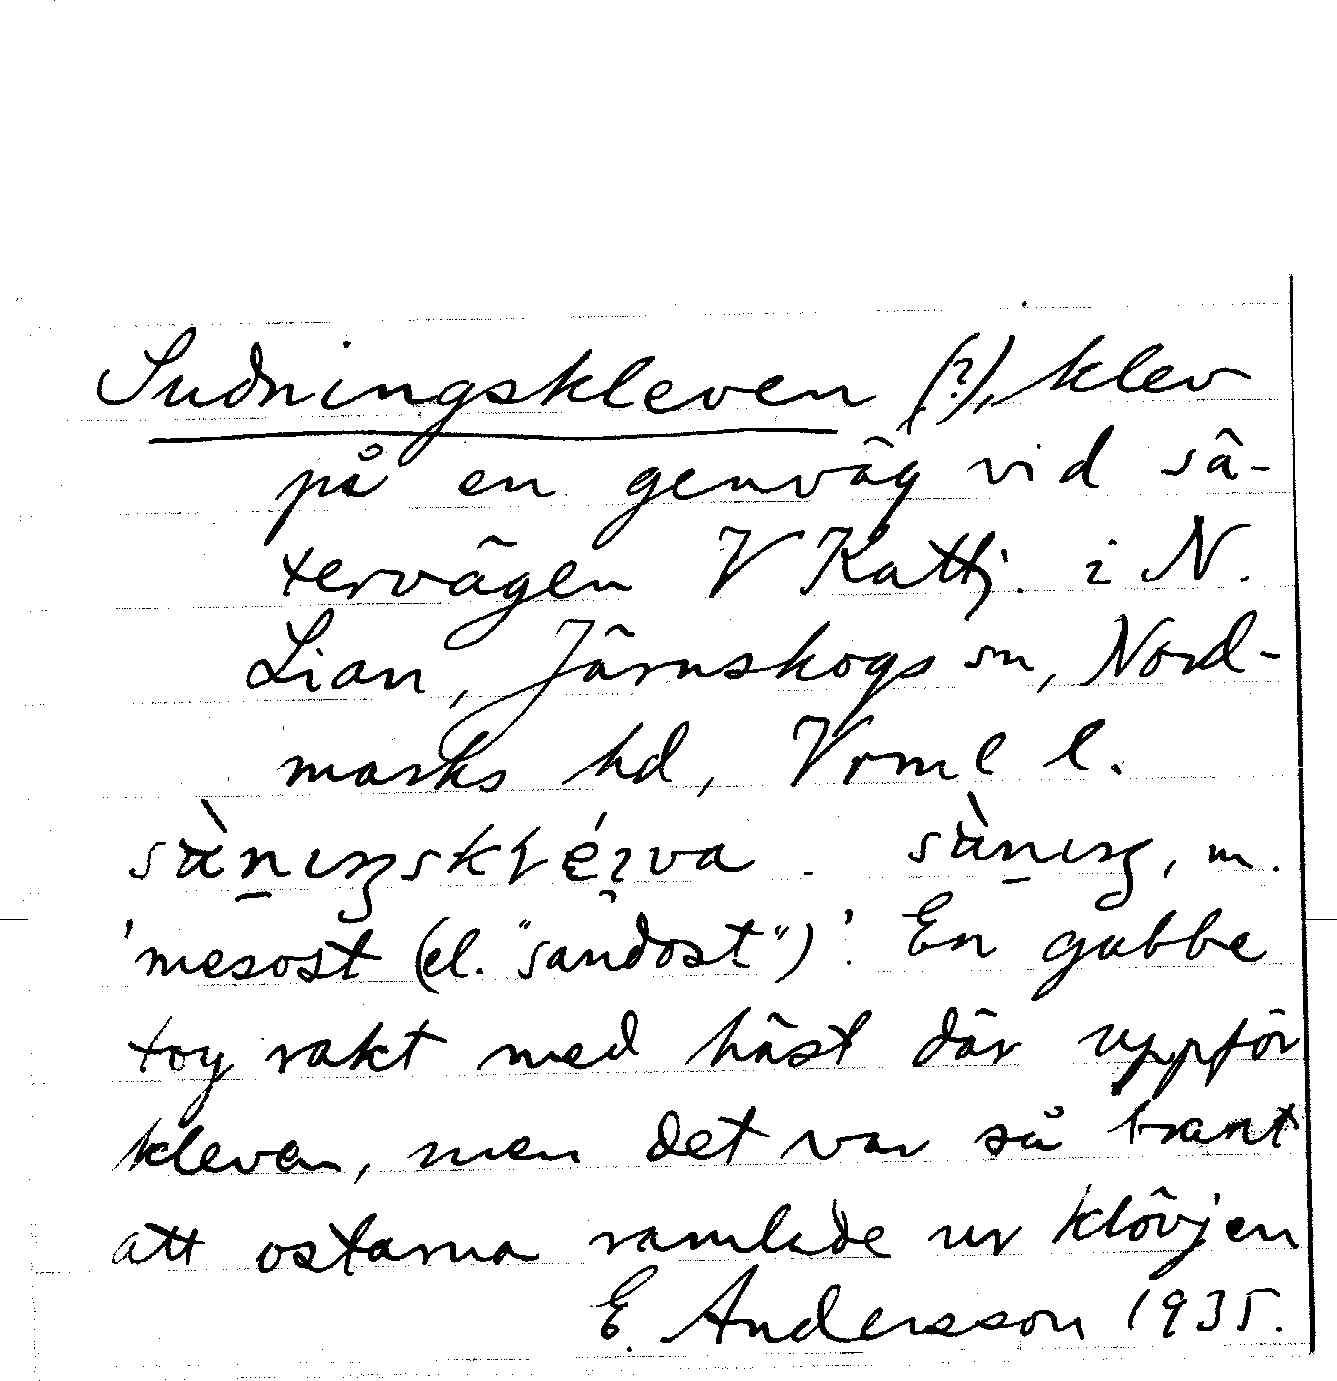 Sudningskleven (?), klev
på en genväg vid sä-
tervägen V Kattj. i N.
Lian, Järnskogs sn, Nord-
marks hd, Vrml l.
m.
'mesost (el. "sandost")'. En gubbe
tog rakt med häst där uppför
kleven, men det var så brant
att ostarna ramlade ur klövjen
E. Andersson 1935.